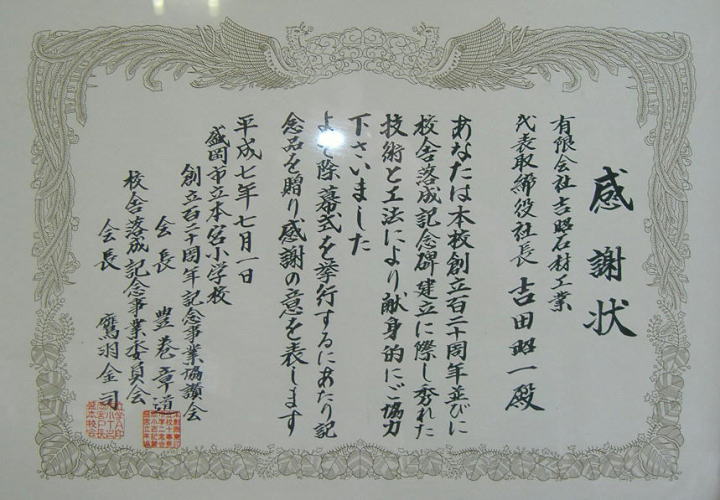 感謝状
有限会社吉昭石材工業
代表取締役社長 吉田昭一殿
あなたは本校創立百二十周年並びに
校舎落成記念碑建立に際し秀れた
技術と工法により献身的にご協力
下さいました
よって除幕式を挙行するにあたり記
念品を贈り感謝の意を表します
平成七年七月一日
盛岡市立本宮小学校
創立百二十周年記念事業協讃会
会長 豊巻章道
校舎落成記念事業委員会
会長 鷹羽金司